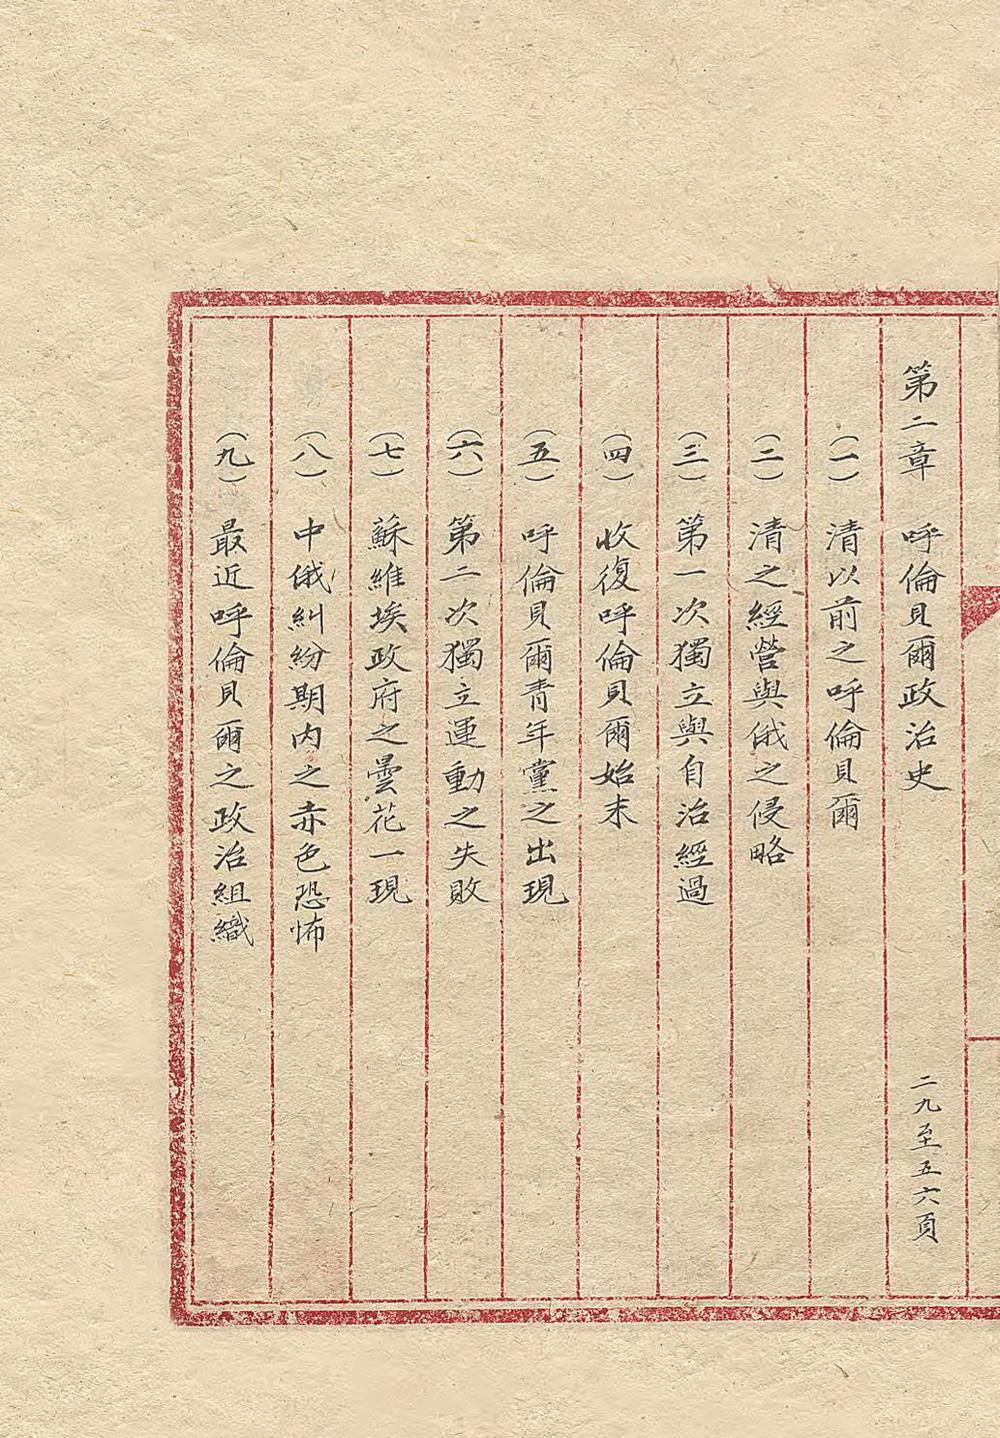 第二章　呼倫貝爾政治史　二九至五六頁
（一）　清以前之呼倫貝爾
（二）　清之經營與俄之侵略
（三）　第一次獨立與自治經過
（四）　收復呼倫貝爾始末
（五）　呼倫貝爾青年黨之出現
（六）　第二次獨立運動之失敗
（七）　蘇維埃政府之曇花一現
（八）　中俄糾紛期內之赤色恐怖
（九）　最近呼倫貝爾之政治組織